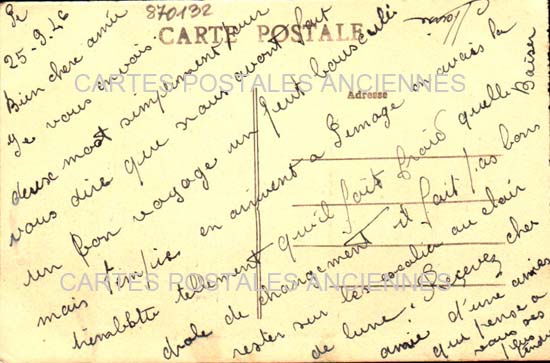 870132
CARTE POSTALE
Adresse
CARTES POSTALES ANCIENNES
CARTES POSTALES ANCIENNES
Le
25-9-46
Bien chere amie
Je vous envois
deux mot simplement pour
vous dire que nous avont fait
un bon voyage un peut bousculée
mais tempie en arrivent a Limoge on avais la
tremblotte tellement qu'il fait froid quelle
drole de changement il fait pas bons
rester sur les au clair
de lune. Recevez cher
amie d'une amies
qui pense a
vous
Baiser